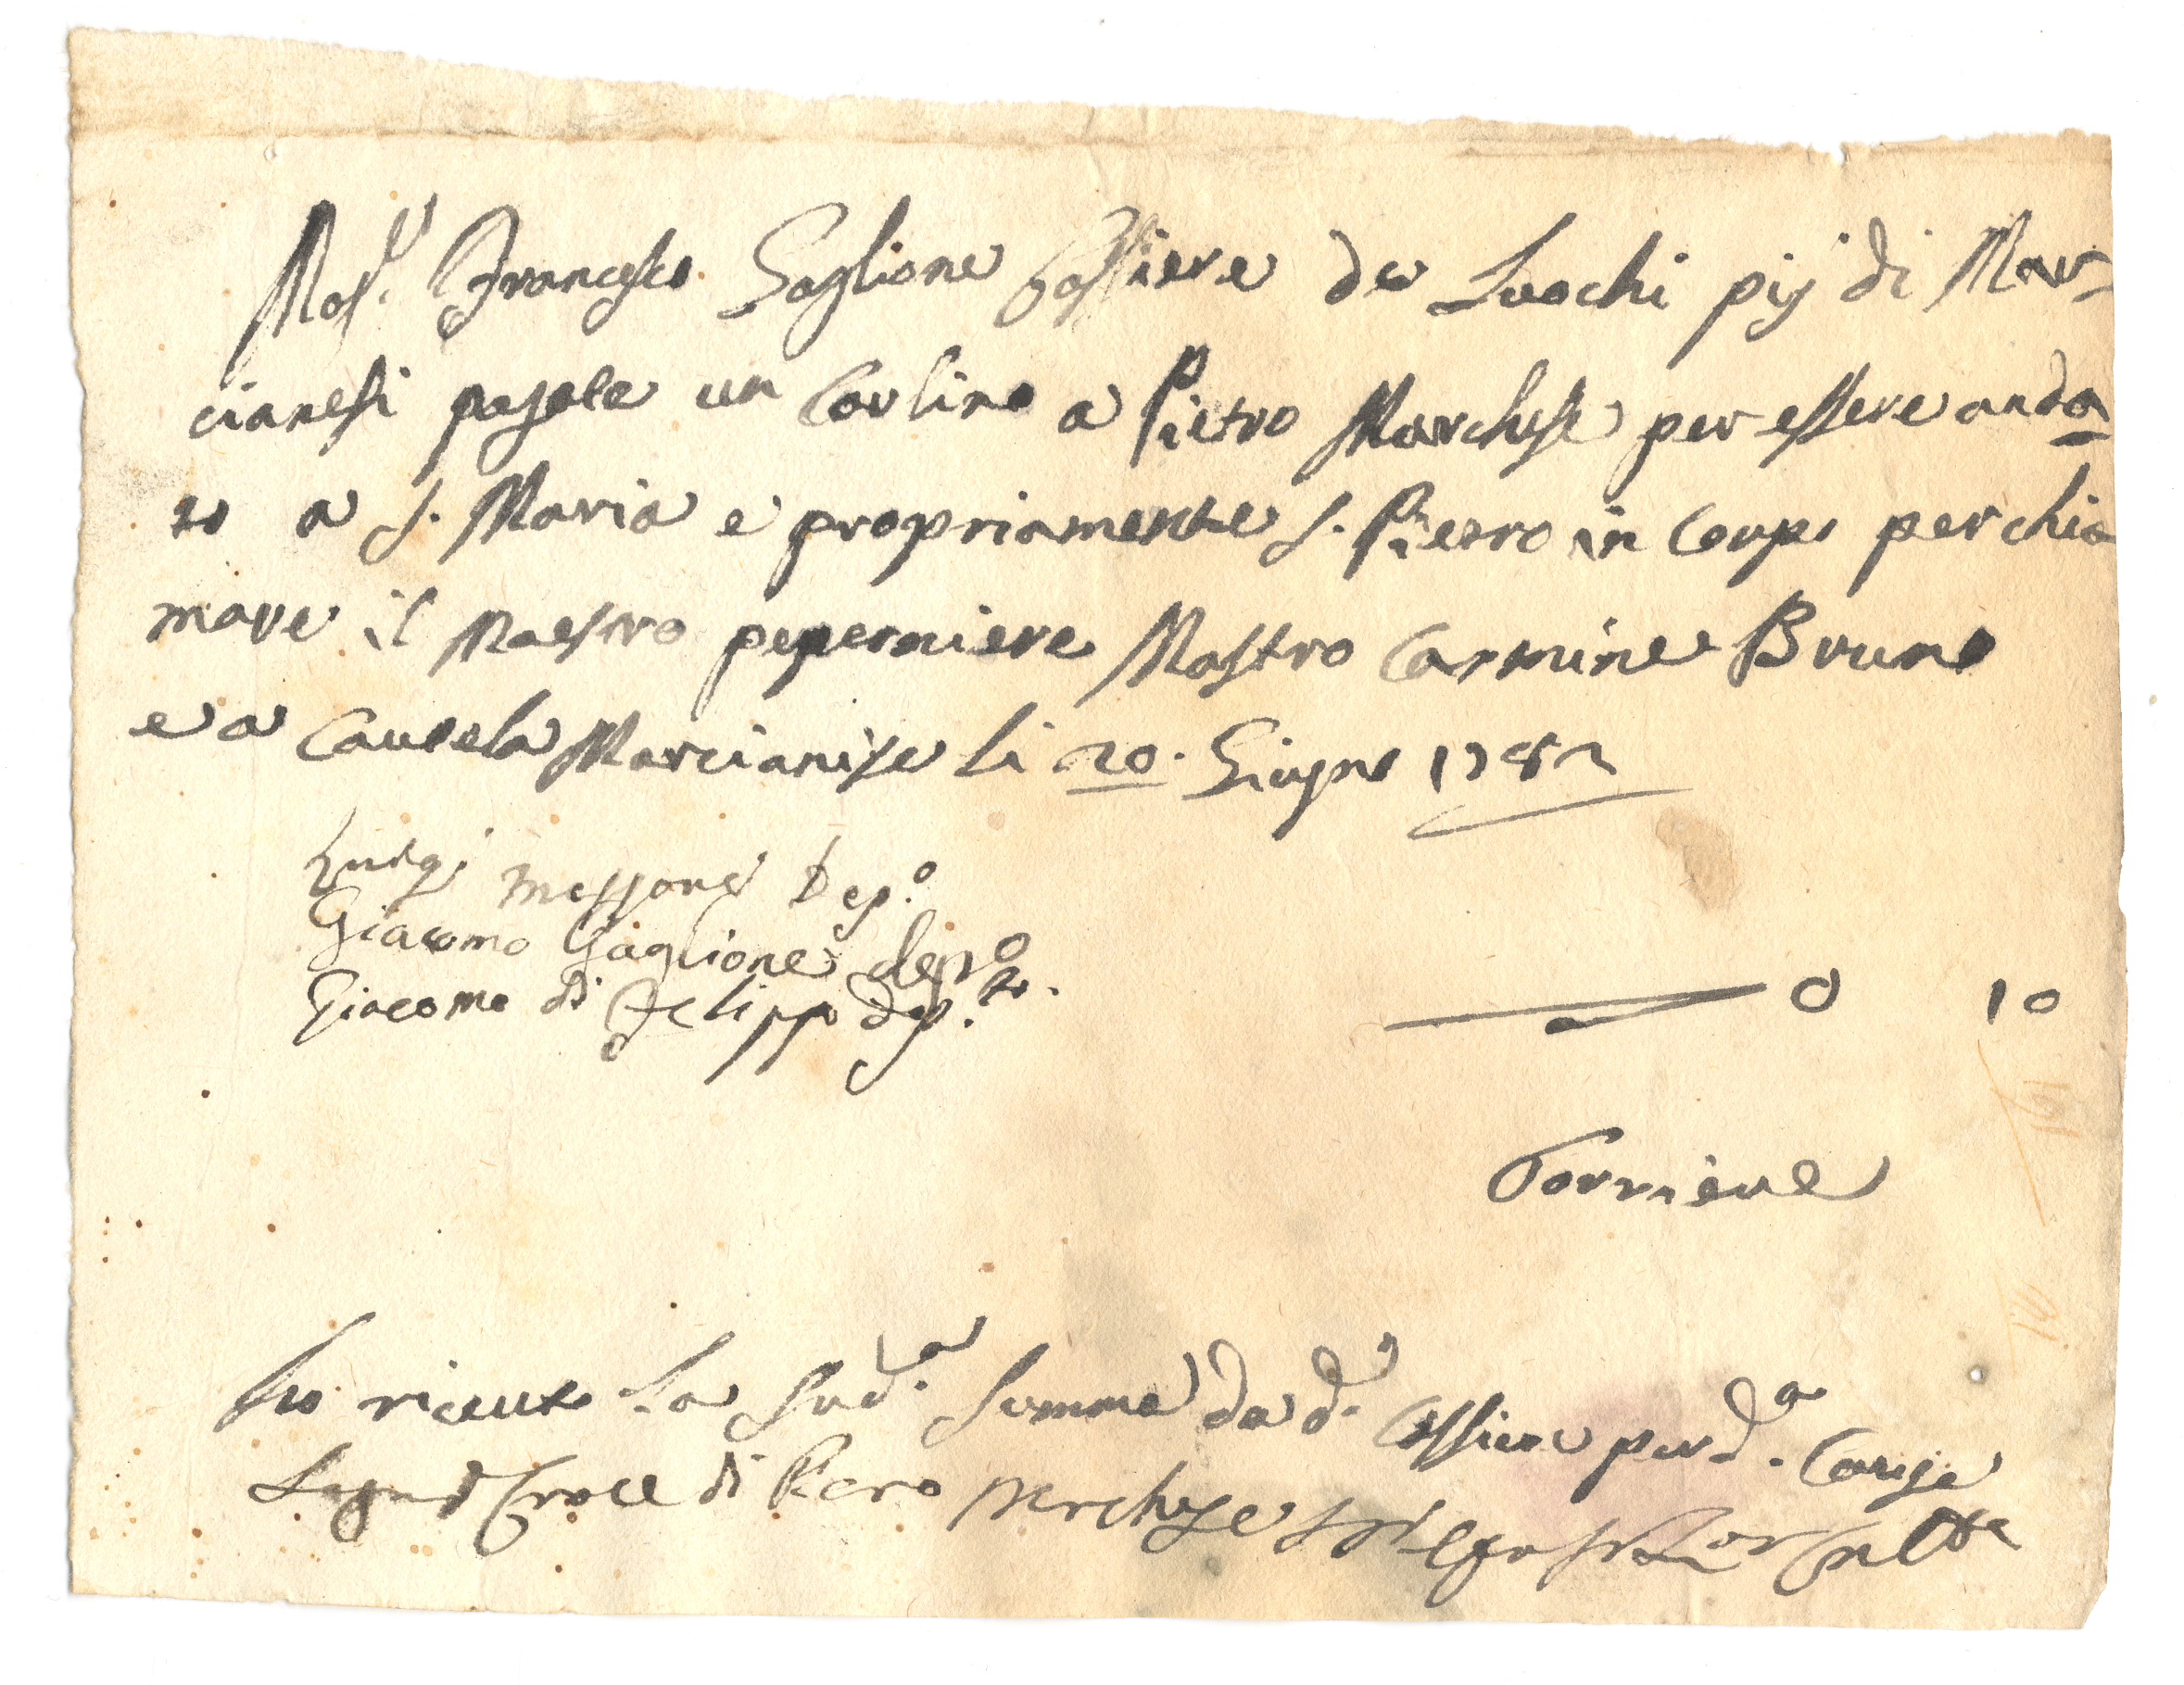 Mag.co Francesco Gaglione Cassiere de Luochi pij di Mar-
cianesi pagate un Carlino a Pietro Marchese per essere anda
to a S. Maria e propriamente S. Pietro in Corpo per chia
mare il Maestro peperniere Mastro Carmine Bruno
e a Cautela Marcianise li 20. Giugno 1782
Luigi Messone Dep.o
Giacomo Gaglione Dep.to
Giacomo di Felippo Dep.to
0 10
Torriere
Ho riceuto la Sud.a Summa da d.o Cassiere per d.a Causa
Segno di Croce di Piero Merchese